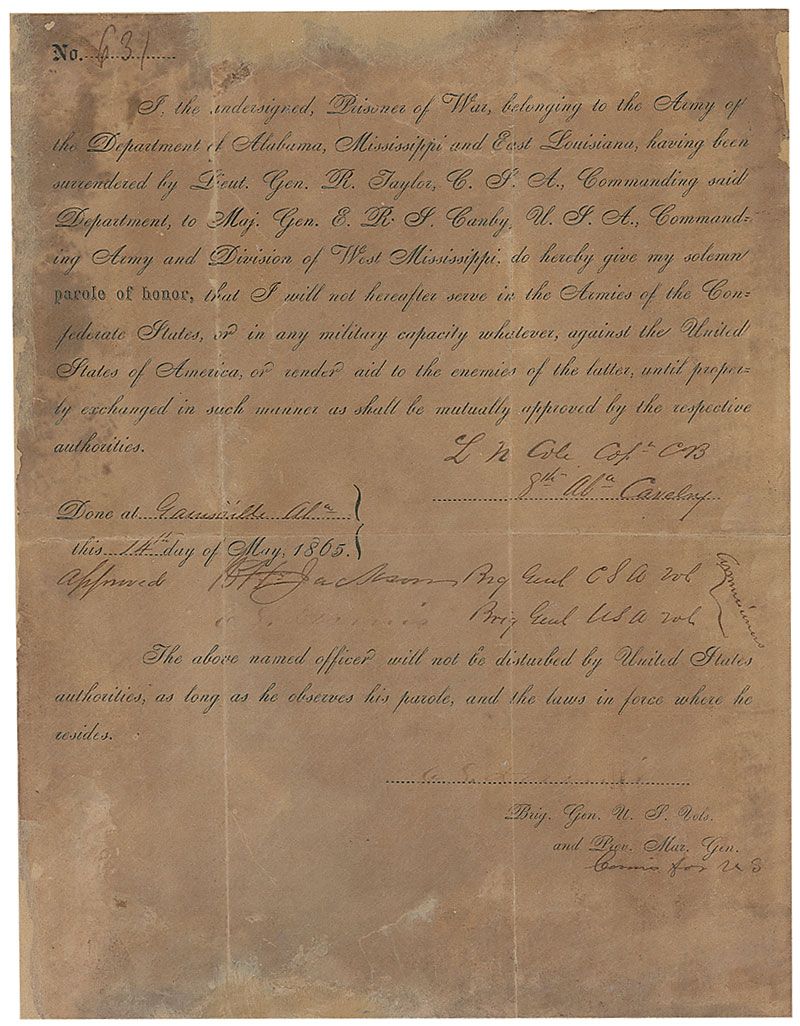 No. 631
I, the undersigned, Prisoner of War, belonging to the Army of
the Department of Alabama, Mississippi and East Louisiana, having been
surrendered by Lieut. Gen. R. Taylor, C. S. A., Commanding said
Department, to Maj. Gen. E. R. S. Canby, U. S. A., Command-
ing Army and Division of West Mississippi, do hereby give my solemn
parole of honor, that I will not hereafter serve in the Armies of the Con-
federate States, or in any military capacity whatever, against the United
States of America, or render aid to the enemies of the latter, until proper-
ly exchanged in such manner as shall be mutually approved by the respective
authorities.
L N Cole Capn Co B
8th Ala Cavelry
Done at Gainsville Ala
this 14th day of May, 1865.
Approved Jackson Brig Genl C S A
Brig Genl U S A vols
Commissioners
The above named officer will not be disturbed by United States
authorities, as long as he observes his parole, and the laws in force where he
resides.
Brig. Gen. U. S. Vols.
and Prov. Mar. Gen.
for U S